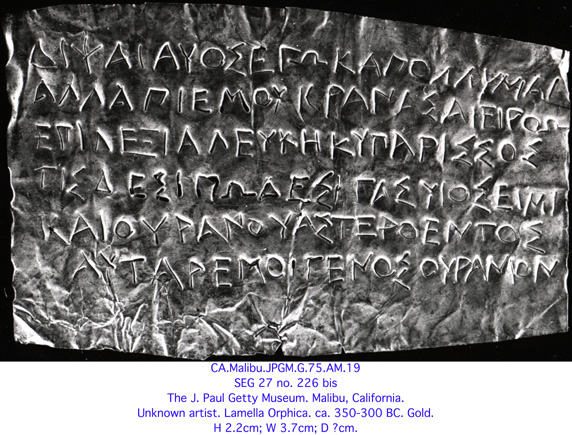 ΔΙΨΑΙΑΥΟΣΕΓΩΚΑΠΟΛΛΥΜΑΙ
ΑΛΛΑΠΙΕΜΟΥΚΡΑΝΑΣΑΙΕΙΡΟΩ
ΕΠΙΔΕΞΙΑΛΕΥΚΗΚΥΠΑΡΙΣΣΟΣ
ΤΙΣΔΕΣΙΠΩΔΕΣΙΓΑΣΥΙΟΣΕΙΜΙ
ΚΑΙΟΥΡΑΝΟΥΑΣΤΕΡΟΕΝΤΟΣ
ΑΥΤΑΡΕΜΟΙΓΕΝΟΣΟΥΡΑΝΙΟΝ
CA.Malibu.JPGM.G.75.AM.19
SEG 27 no. 226 bis
The J. Paul Getty Museum. Malibu, California.
Unknown artist. Lamella Orphica. ca. 350-300 BC. Gold.
H 2.2cm; W 3.7cm; D ?cm.